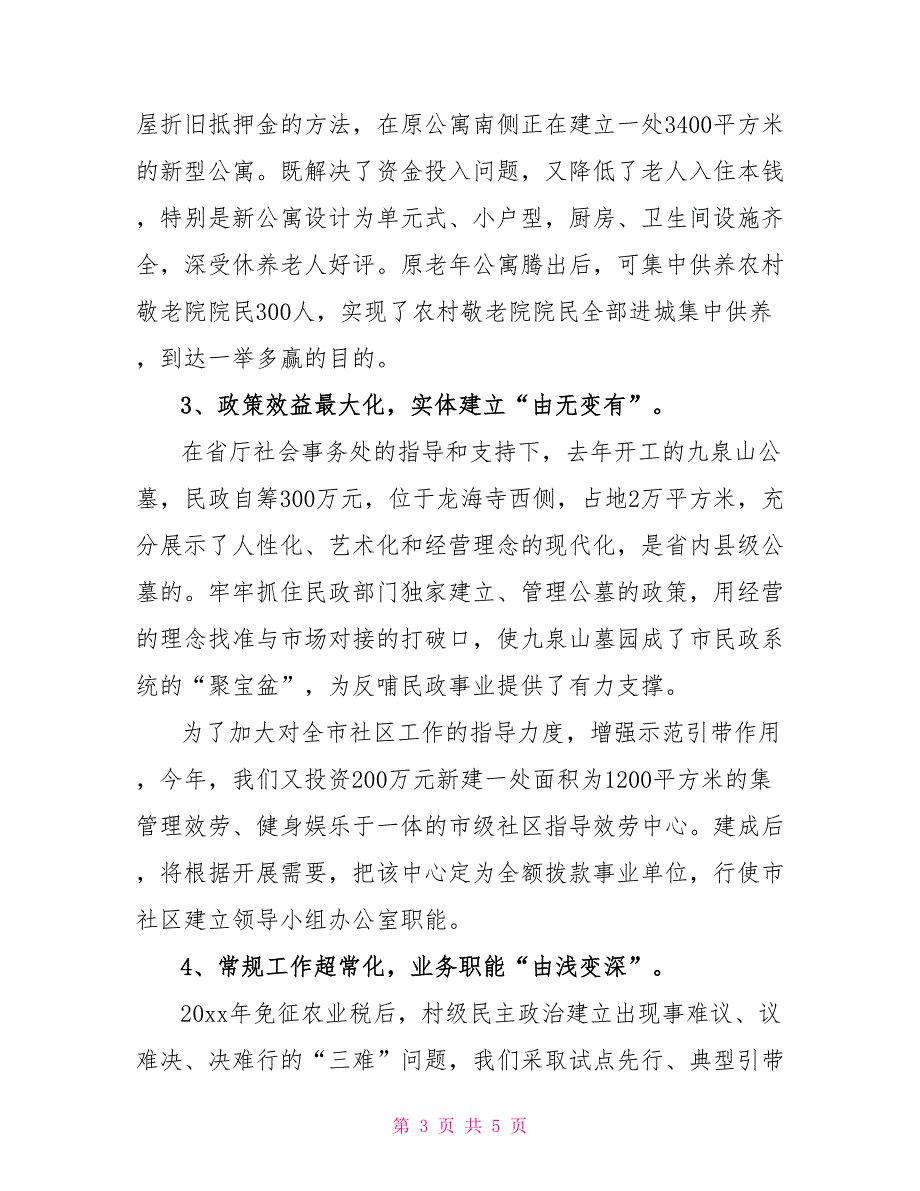 屋折旧抵押金的方法，在原公寓南侧正在建立一处3400平方米
的新型公寓。既解决了资金投入问题，又降低了老人入住本钱
，特别是新公寓设计为单元式、小户型，厨房、卫生间设施齐
全，深受休养老人好评。原老年公寓腾出后，可集中供养农村
敬老院院民300人，实现了农村敬老院院民全部进城集中供养
，到达一举多赢的目的。
3、政策效益最大化，实体建立“由无变有”。
在省厅社会事务处的指导和支持下，去年开工的九泉山公
墓，民政自筹300万元，位于龙海寺西侧，占地2万平方米，充
分展示了人性化、艺术化和经营理念的现代化，是省内县级公
墓的。牢牢抓住民政部门独家建立、管理公墓的政策，用经营
的理念找准与市场对接的打破口，使九泉山墓园成了市民政系
统的“聚宝盆”，为反哺民政事业提供了有力支撑。
为了加大对全市社区工作的指导力度，增强示范引带作用
，今年，我们又投资200万元新建一处面积为1200平方米的集
管理效劳、健身娱乐于一体的市级社区指导效劳中心。建成后
，将根据开展需要，把该中心定为全额拨款事业单位，行使市
社区建立领导小组办公室职能。
4、常规工作超常化，业务职能“由浅变深”。
20xx年免征农业税后，村级民主政治建立出现事难议、议
难决、决难行的“三难”问题，我们采取试点先行、典型引带
第 3 页 共 5 页